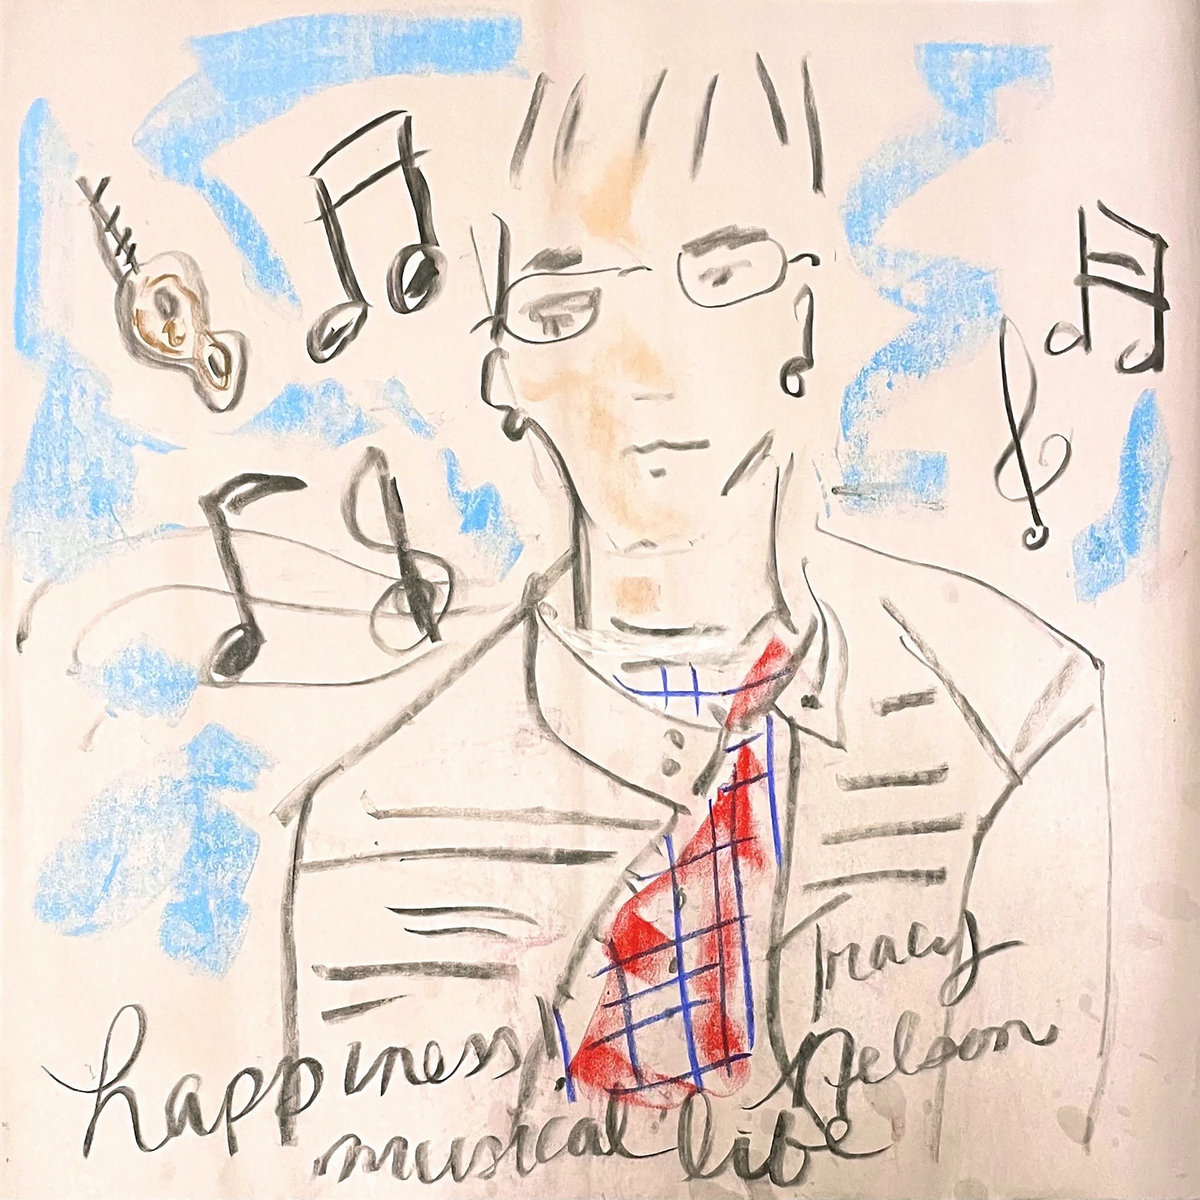 Tracy
Nelson
happiness!
musical life